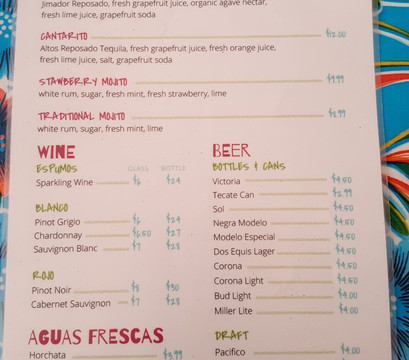 Jimador Reposado, fresh grapefruit juice, organic agave nectar,
fresh lime juice, grapefruit soda
CANTARITO $12.00
Altos Reposado Tequila, fresh grapefruit juice, fresh orange juice,
fresh lime juice, salt, grapefruit soda
STAWBERRY MOJITO $9.99
white rum, sugar, fresh mint, fresh strawberry, lime
TRADITIONAL MOJITO $8.99
white rum, sugar, fresh mint, lime
WINE
ESPUMOS GLASS BOTTLE
Sparkling Wine $6 $24
BLANCO
Pinot Grigio $6 $24
Chardonnay $6.50 $27
Sauvignon Blanc $7 $28
ROJO
Pinot Noir $8 $30
Cabernet Sauvignon $7 $28
AGUAS FRESCAS
Horchata $3.99
BEER
BOTTLES & CANS
Victoria $4.50
Tecate Can $2.99
Sol $4.50
Negra Modelo $4.50
Modelo Especial $4.50
Dos Equis Lager $4.50
Corona $4.50
Corona Light $4.50
Bud Light $4.00
Miller Lite $4.00
DRAFT
Pacifico $4.00